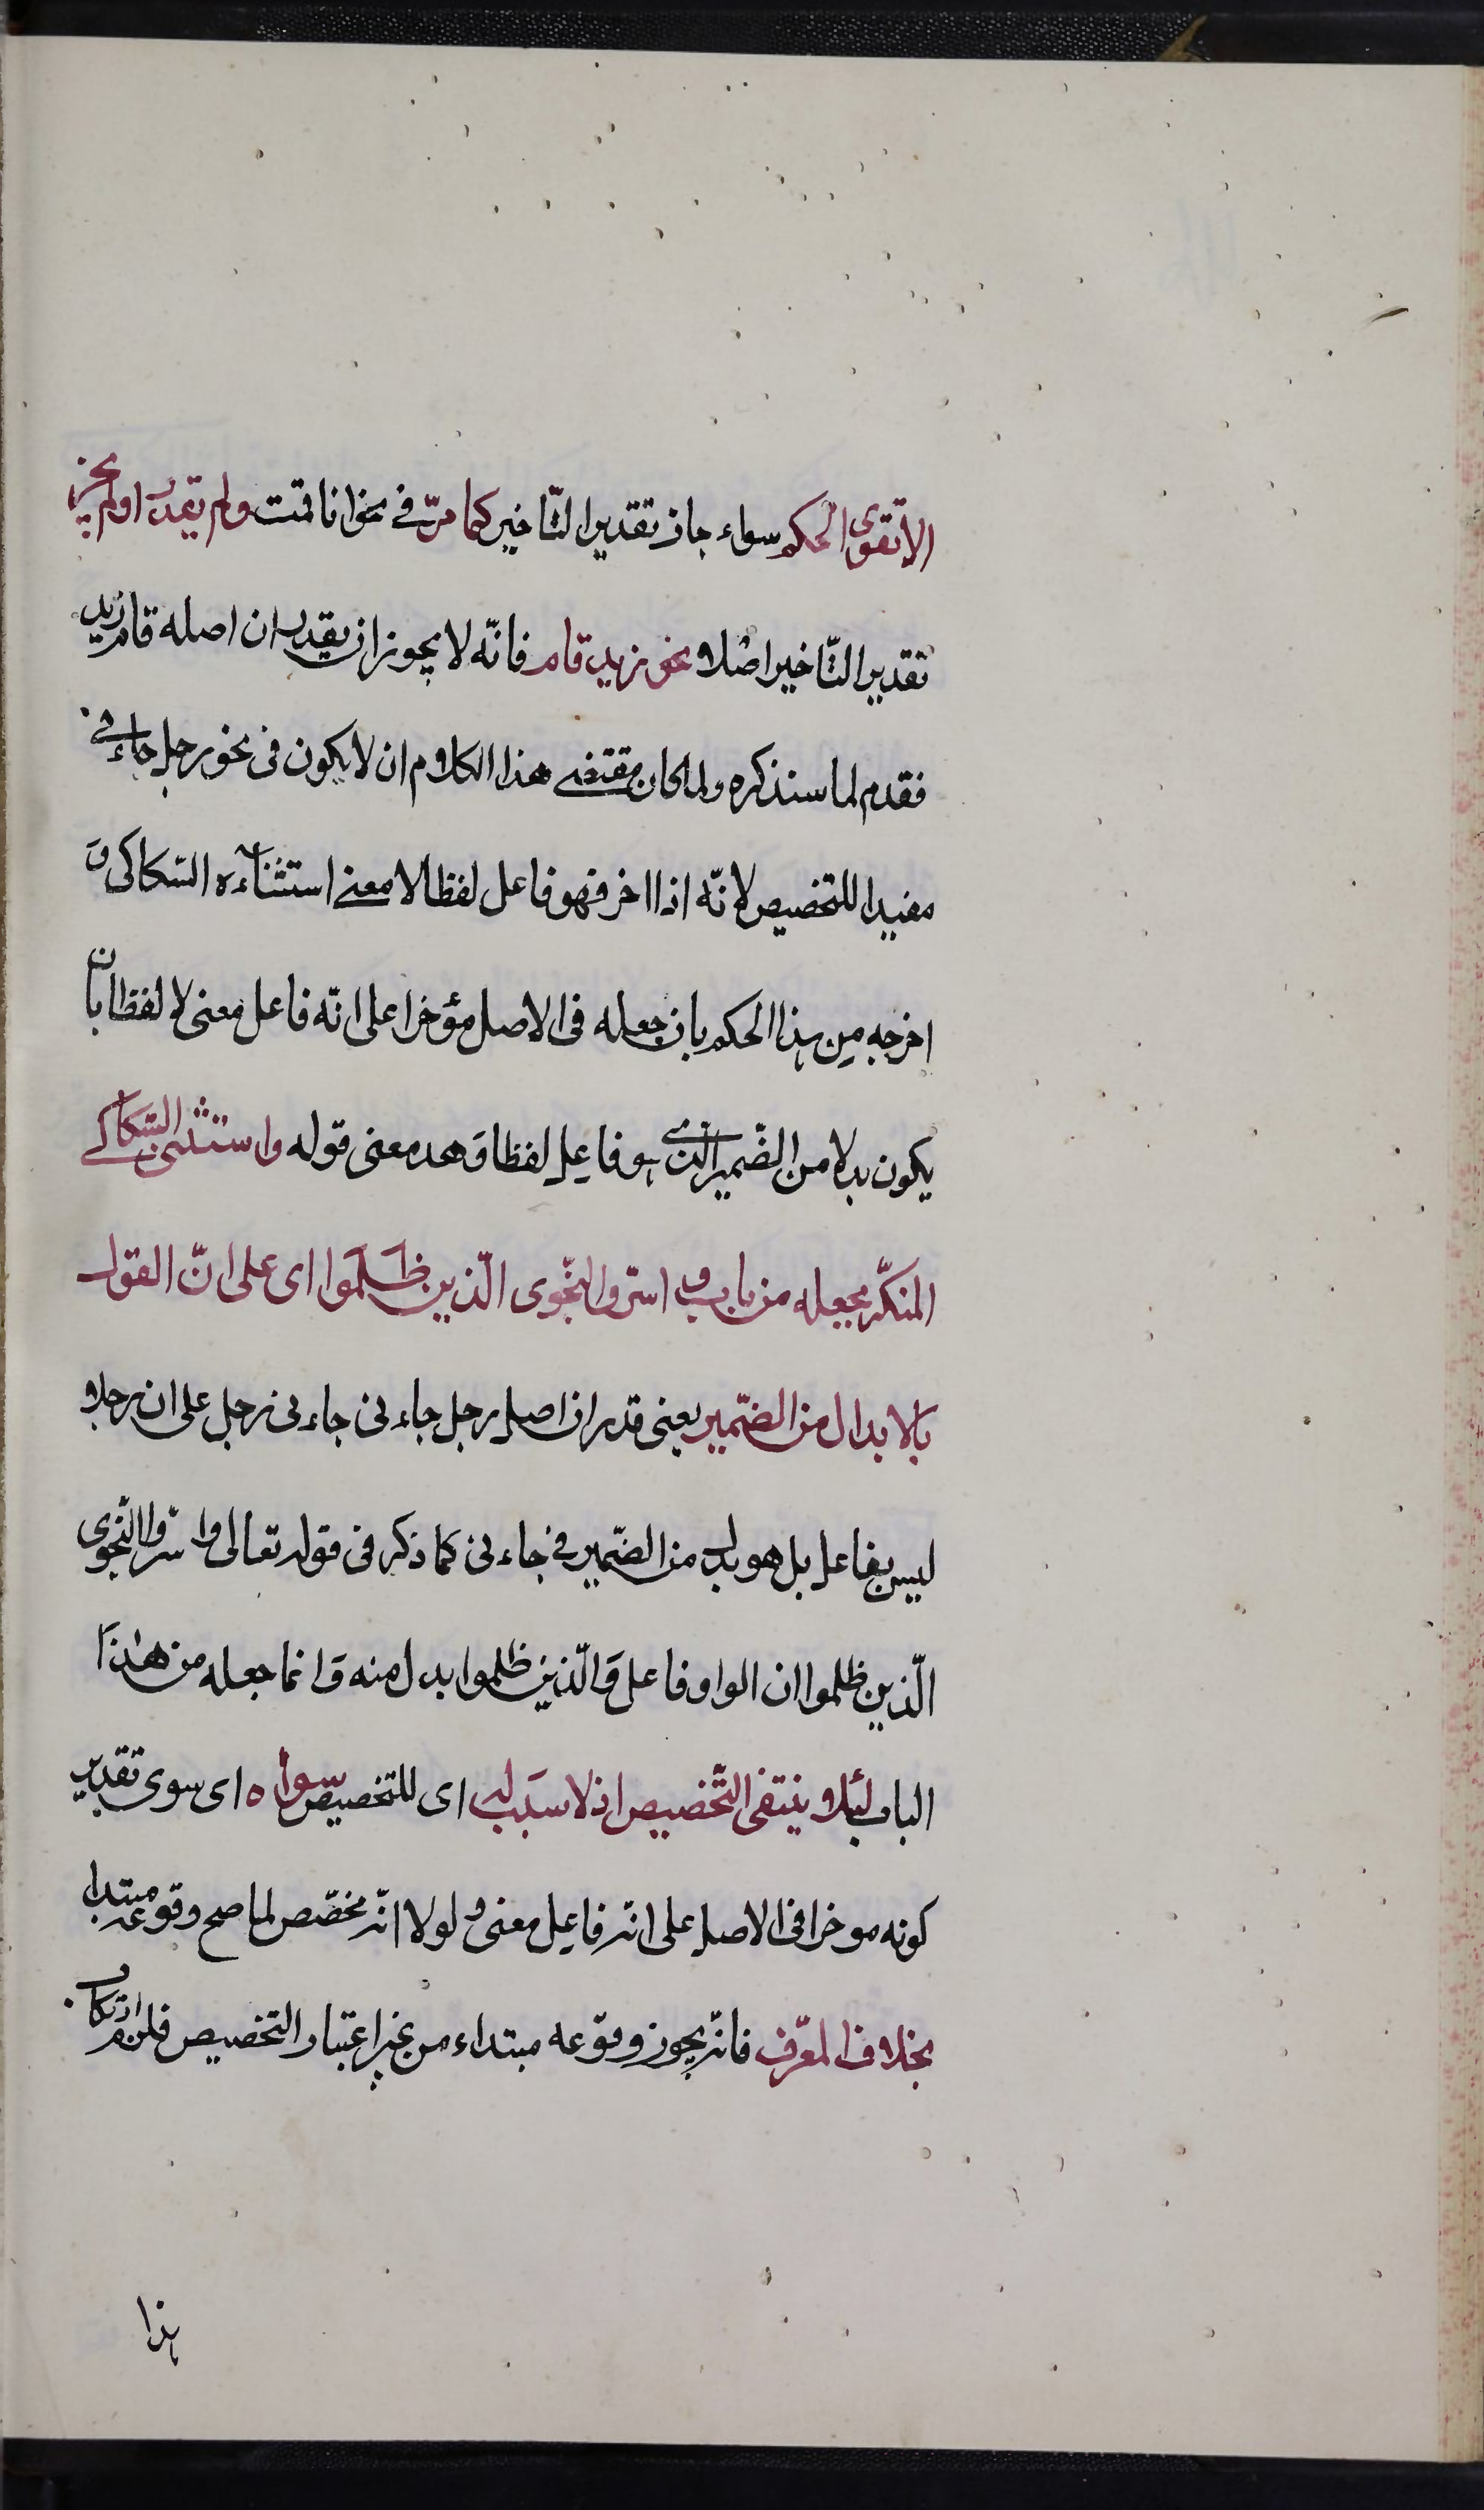 الا تقوى الحكم سواء جاز تقدير التّاخير كما مرّ في نحو انا قمت ولم يقدر او لم يجز
تقدير التّاخير اصلا نحو زيد قام فانّه لا يجوز ان يقدر ان اصله قام زيد
فقدم لما سنذكره ولما كان مقتضى هذا الكلام ان لا يكون فى نحو رجل جاءنى
مفيدا للتخصيص لانّه اذا اخر فهو فاعل لفظا لا معنى استثناءه السّكاكى و
اخرجه من هذا الحكم بان جعله فى الاصل مؤخرا على انّه فاعل معنى لا لفظا بان
يكون بدلا من الضّمير الذى هو فاعل لفظا وهد معنى قوله واستثنى السّكاكى
المنكّر بجعله من باب و اسرّوا النّجوى الّذين ظلموا اى على انّ القول
بالابدال من الضّمير يعنى قدر ان اصل رجل جاءنى جاءنى رجل على ان رجلا
ليس بفاعل بل هو بدل من الضّمير فى جاءنى كما ذكر فى قوله تعالى واسرّوا النّجوى
الّذين ظلموا ان الواو فاعل وَالّذين ظلموا بدل منه وَانما جعله من هذا
الباب لئلا ينتفى التّخصيص اذ لا سبب له اى للتخصيص سواه اى سوى تقدير
كونه موخرا فى الاصل على انّه فاعل معنى و لولا انّه مخصّص لما صح وقوعه مبتدا
بخلاف المعرّف فانّه يجوز وقوعه مبتداء من غير اعتبار التخصيص فلزم ارتكاب
هذا